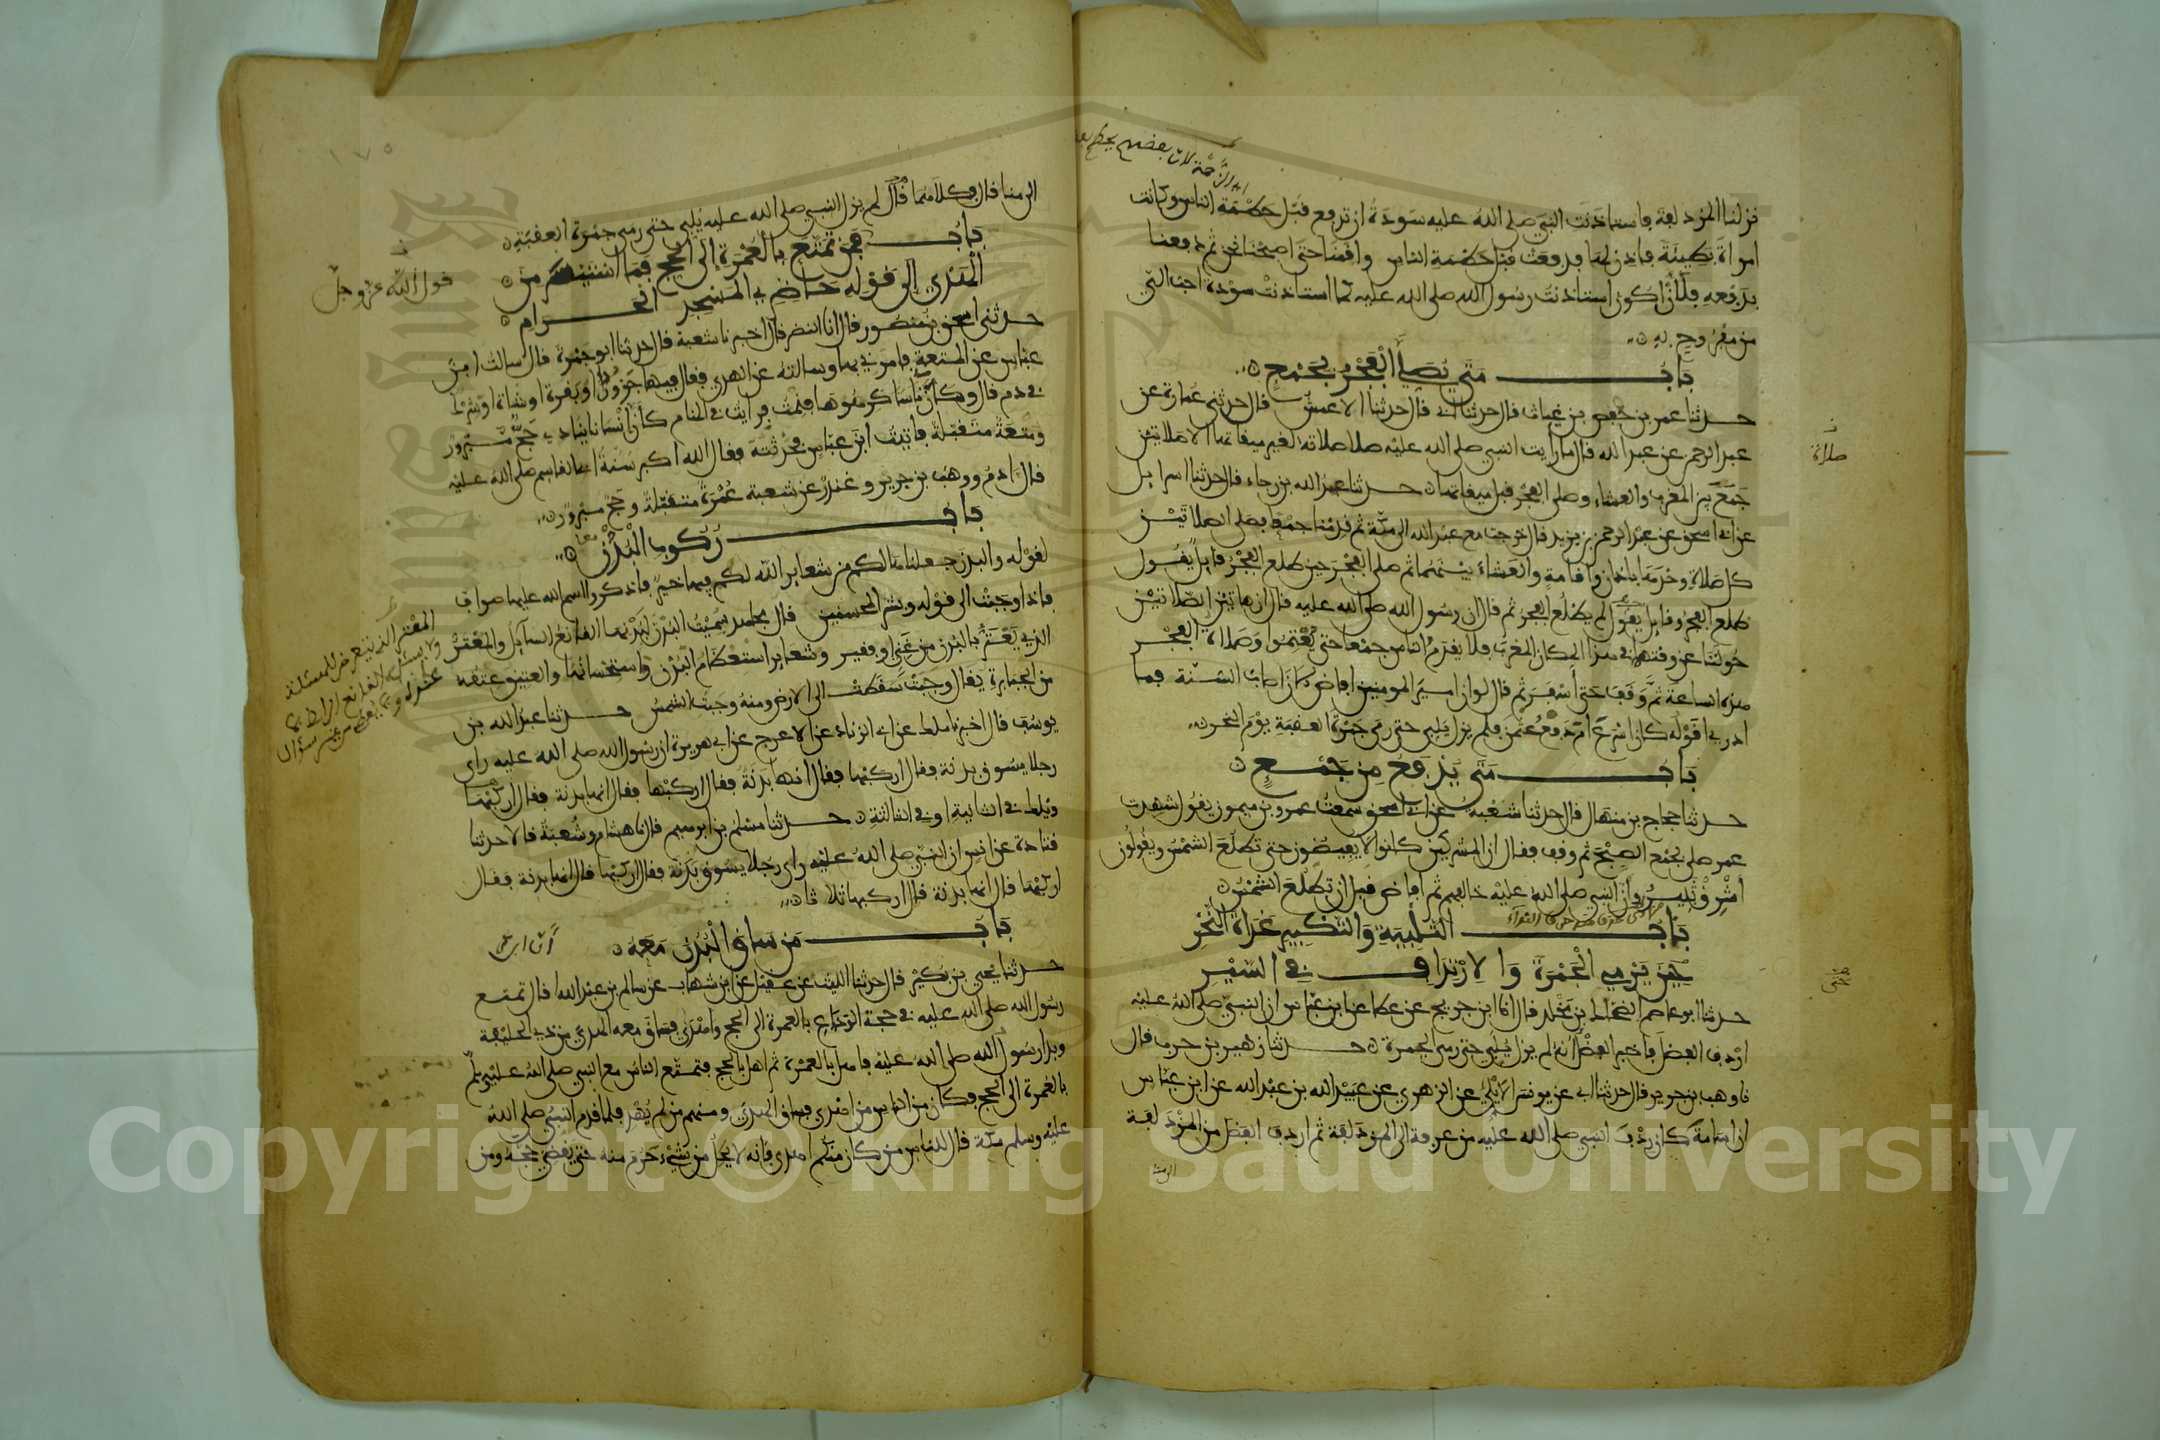 اي الزحمة لان بعضهم يحطم بعضا
نزلنا المزدلفة فاستاذنت النبي صلى الله عليه سودة ان تدفع قبل حطمة الناس وكانت
امراة بطيئة فاذن لها فدفعت قبل حطمة الناس واقمنا حتى اصبحنا نحن ثم دفعنا
بدفعه فلأن اكون استاذنت رسول الله صلى الله عليه كما استاذنت سودة احب الي
من مفروح به
باب متى يصلي الفجر بجمع
حدثنا عمر بن حفص بن غياث قال حدثنا ابي قال حدثنا الاعمش قال حدثني عمارة عن
عبد الرحمن عن عبد الله قال ما رايت النبي صلى الله عليه صلى صلاة لغير ميقاتها الا صلاتين
صلاة
جمع بين المغرب والعشاء وصلى الفجر قبل ميقاتها حدثنا عبد الله بن رجاء قال حدثنا اسرايل
عن ابي اسحق عن عبد الرحمن بن يزيد قال خرجت مع عبد الله الى مكة ثم قدمنا جمعا فصلى الصلاتين
كل صلاة وحدها باذان واقامة والعشاء بينهما ثم صلى الفجر حين طلع الفجر قايل يقول
طلع الفجر وقايل يقول لم يطلع الفجر ثم قال ان رسول الله صلى الله عليه قال ان هاتين الصلاتين
حولتا عن وقتهما في هذا المكان المغرب فلا يقدم الناس جمعا حتى يعتموا وصلاة الفجر
هذه الساعة ثم وقف حتى أسفر ثم قال لو ان امير المومنين افاض الان اصاب السنة فما
ادري اقوله كان اسرع ام دفع عثمن فلم يزل يلبي حتى رمى جمرة العقبة يوم النحر
باب متى يدفع من جمع
حدثنا حجاج بن منهال قال حدثنا شعبة عن ابي اسحق سمعت عمرو بن ميمون يقول شهدت
عمر صلى بجمع الصبح ثم وقف فقال ان المشركين كانوا لا يفيضون حتى تطلع الشمس ويقولون
أشرق ثبير وأن النبي صلى الله عليه خالفهم ثم افاض قبل ان تطلع الشمس
باب التلبية والتكبير غداة النحر
حين يرمي الجمرة والارتداف في السير
حدثنا ابو عاصم الضحاك بن مخلد قال انا ابن جريج عن عطا عن ابن عباس ان النبي صلى الله عليه
اردف الفضل فاخبر الفضل أنه لم يزل يلبي حتى رمى الجمرة حدثنا زهير بن حرب قال
نا وهب بن جرير قال حدثنا ابي عن يونس الايلي عن الزهري عن عبيد الله بن عبد الله عن ابن عباس
ان اسامة كان ردف النبي صلى الله عليه من عرفة الى المزدلفة ثم اردف الفضل من المزدلفة
الى منى
١٧٥
الى منا قال وكلاهما قال لم يزل النبي صلى الله عليه يلبي حتى رمى جمرة العقبة
باب فمن تمتع بالعمرة إلى الحج فما استيسر من
قول الله عز وجل
الهدي إلى قوله حاضري المسجد الحرام
حدثني اسحق بن منصور قال انا النضر قال اخبرنا شعبة قال حدثنا ابو جمرة قال سالت ابن
عباس عن المتعة فامرني بها وسالته عن الهدي فقال فيها جزور او بقرة او شاة او شرك
في دم قال وكأن ناسا كرهوها فنمت فرايت في المنام كأن انسانا ينادي حج مبرور
ومتعة متقبلة فاتيت ابن عباس فحدثته فقال الله اكبر سنة ابي القاسم صلى الله عليه
قال ادم ووهب بن جرير وغندر عن شعبة عمرة متقبلة وحج مبرور
باب ركوب البدن
لقوله والبدن جعلناها لكم من شعاير الله لكم فيها خير فاذكروا اسم الله عليها صواف
فاذا وجبت الى قوله وبشر المحسنين قال مجاهد سميت البدن لبدنها القانع السايل والمعتر
الذي يعتر بالبدن من غني او فقير وشعاير استعظام البدن واستحسانها والعتيق عتقه
من الجبابرة يقال وجبت سقطت الى الارض ومنه وجبت الشمس حدثنا عبد الله بن
يوسف قال اخبرنا ملك عن ابي الزناد عن الاعرج عن ابي هريرة ان رسول الله صلى الله عليه راى
رجلا يسوق بدنة فقال اركبها فقال انها بدنة فقال اركبها فقال انها بدنة فقال اركبها
ويلك في الثانية او في الثالثة حدثنا مسلم بن ابرهيم قال نا هشام وشعبة قالا حدثنا
قتادة عن انس ان النبي صلى الله عليه راى رجلا يسوق بدنة فقال اركبها قال انها بدنة فقال
اركبها قال انها بدنة قال اركبها ثلاثا
باب من ساق البدن معه
حدثنا يحيى بن بكير قال حدثنا الليث عن عقيل عن ابن شهاب عن سالم بن عبد الله قال تمتع
رسول الله صلى الله عليه في حجة الوداع بالعمرة الى الحج واهدى فساق معه الهدي من ذي الحليفة
وبدا رسول الله صلى الله عليه فاهل بالعمرة ثم اهل بالحج فتمتع الناس مع النبي صلى الله عليه وسلم
بالعمرة الى الحج فكان من الناس من اهدى فساق الهدي ومنهم من لم يهد فلما قدم النبي صلى الله
عليه وسلم مكة قال للناس من كان منكم اهدى فانه لا يحل من شيء حرم منه حتى يقضي حجه ومن
Copyright © King Saud University